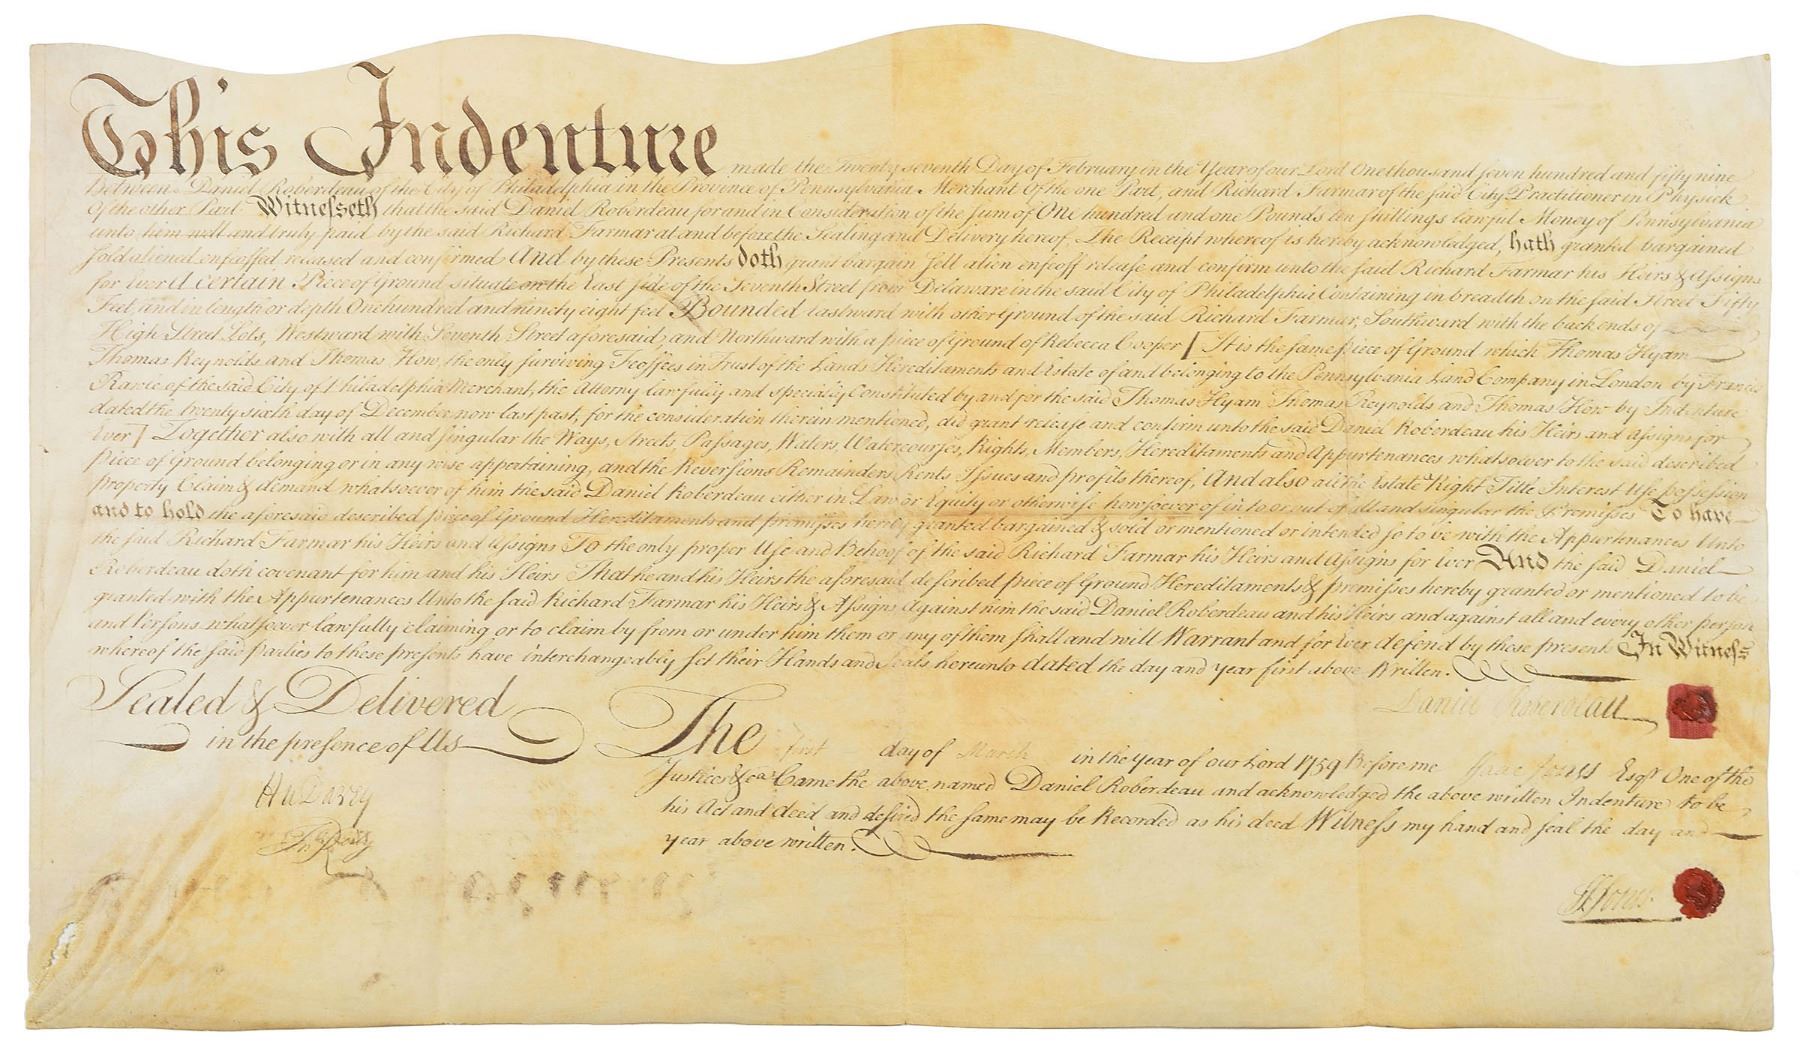 This Indenture made the Twenty seventh Day of February in the Year of our Lord One thousand seven hundred and fifty nine
Between Daniel Roberdeau of the City of Philadelphia in the Province of Pennsylvania Merchant Of the one Part, and Richard Farmar of the said City Practitioner in Physick
Of the other Part Witnesseth that the said Daniel Roberdeau for and in Consideration of the sum of One hundred and one Pounds ten shillings lawful Money of Pennsylvania
unto him well and truly paid by the said Richard Farmar at and before the Sealing and Delivery hereof, The Receipt whereof is hereby acknowledged, hath granted bargained
sold aliened enfeoffed released and confirmed And by these Presents doth grant bargain sell alien enfeoff release and confirm unto the said Richard Farmar his Heirs & assigns
for Ever A certain Piece of Ground situate on the East side of the Seventh Street from Delaware in the said City of Philadelphia Containing in breadth on the said Street Fifty
Feet, and in length or depth One hundred and ninety eight feet Bounded Eastward with other Ground of the said Richard Farmar, Southward with the back ends of
High Street Lots, Westward with Seventh Street aforesaid, and Northward with a piece of Ground of Rebecca Cooper [It is the same piece of Ground which Thomas Hyam
Thomas Reynolds and Thomas How, the only surviving Feoffees in Trust of the Lands Hereditaments and Estate of and belonging to the Pennsylvania Land Company in London by Francis
Rawle of the said City of Philadelphia Merchant, the Attorny Lawfully and specially Constituted by and for the said Thomas Hyam Thomas Reynolds and Thomas How by Indenture
dated the twenty sixth day of December now last past, for the consideration therein mentioned, did grant release and confirm unto the said Daniel Roberdeau his Heirs and assigns for
Ever] Together also with all and singular the Ways, Streets, Passages, Waters, Watercourses, Rights, Members, Hereditaments and Appurtenances whatsoever to the said described
piece of Ground belonging or in any wise appertaining, and the Reversions Remainders Rents Issues and profits thereof, And also all the Estate Right Title Interest Use possession
property Claim & demand whatsoever of him the said Daniel Roberdeau either in Law or Equity or otherwise howsoever of in to or out of all and singular the Premisses To have
and to hold the aforesaid described piece of Ground Hereditaments and premisses hereby granted bargained & sold or mentioned or intended so to be with the Appurtenances Unto
the said Richard Farmar his Heirs and assigns To the only proper Use and Behoof of the said Richard Farmar his Heirs and Assigns for Ever And the said Daniel
Roberdeau doth covenant for him and his Heirs That he and his Heirs the aforesaid described piece of Ground Hereditaments & premisses hereby granted or mentioned to be
granted with the Appurtenances Unto the said Richard Farmar his Heirs & Assigns Against him the said Daniel Roberdeau and his Heirs and against all and every other person
and Persons whatsoever lawfully claiming or to claim by from or under him them or any of them shall and will Warrant and for Ever defend by these presents In Witness
whereof the said parties to these presents have interchangeably set their Hands and Seals hereunto dated the day and year first above Written.
Daniel Roberdeau
Sealed & Delivered
in the presence of Us
The first day of March in the year of our Lord 1759 Before me Isaac Jones Esqr One of the
Justices &ca Came the above named Daniel Roberdeau and acknowledged the above written Indenture to be
his Act and deed and desired the same may be Recorded as his deed Witness my hand and seal the day and
year above written.
Is Jones